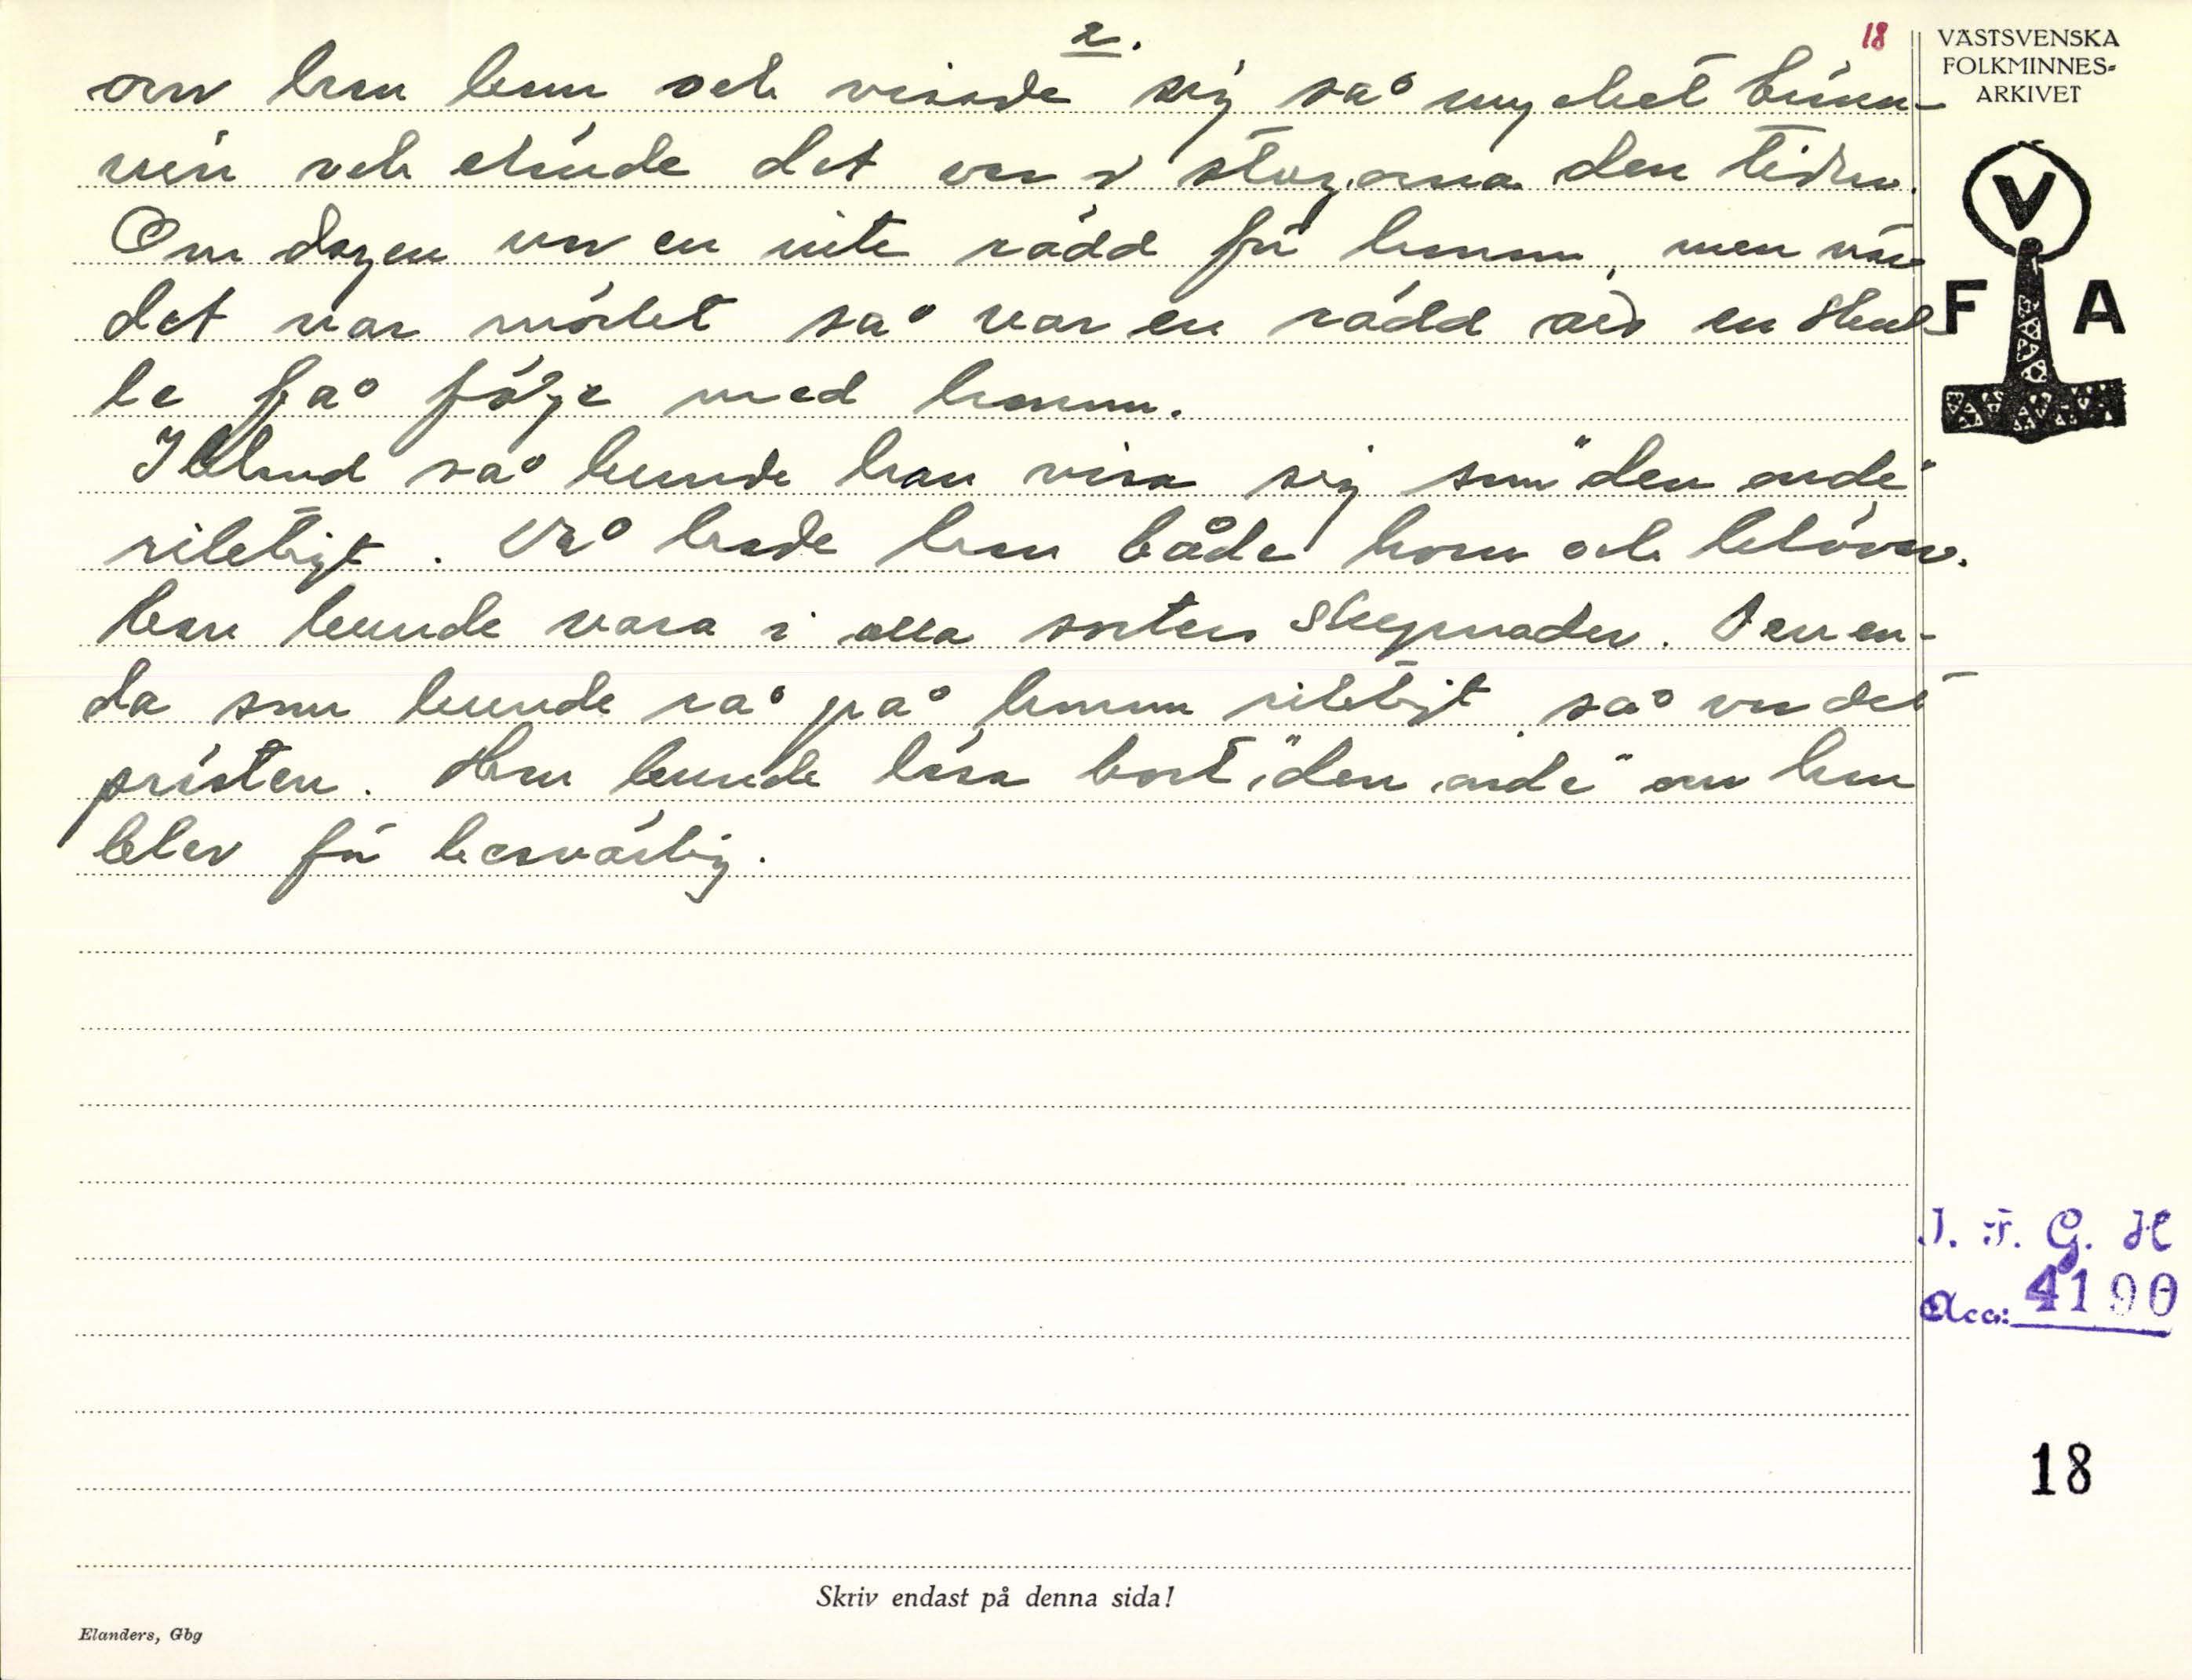 2.
18
om han kom och visade sig så mycket bränn-
vin och elände det var i stugorna den tiden.
Om dagen var en inte rädd för honom, men när
det var mörket så var en rädd att en skul-
le få följe med honom.
Ibland så kunde han visa sig som "den onde"
riktigt. Då hade han både horn och klövar.
Han kunde vara i alla sorters skepnader. Den en-
da som kunde rå på honom riktigt, så var det
prästen. Han kunde läsa bort "den onde" om han
blev för besvärlig.
VÄSTSVENSKA
FOLKMINNES-
ARKIVET
V
F A
I. F. G. H
Acc: 4190
18
Skriv endast på denna sida!
Elanders, Gbg